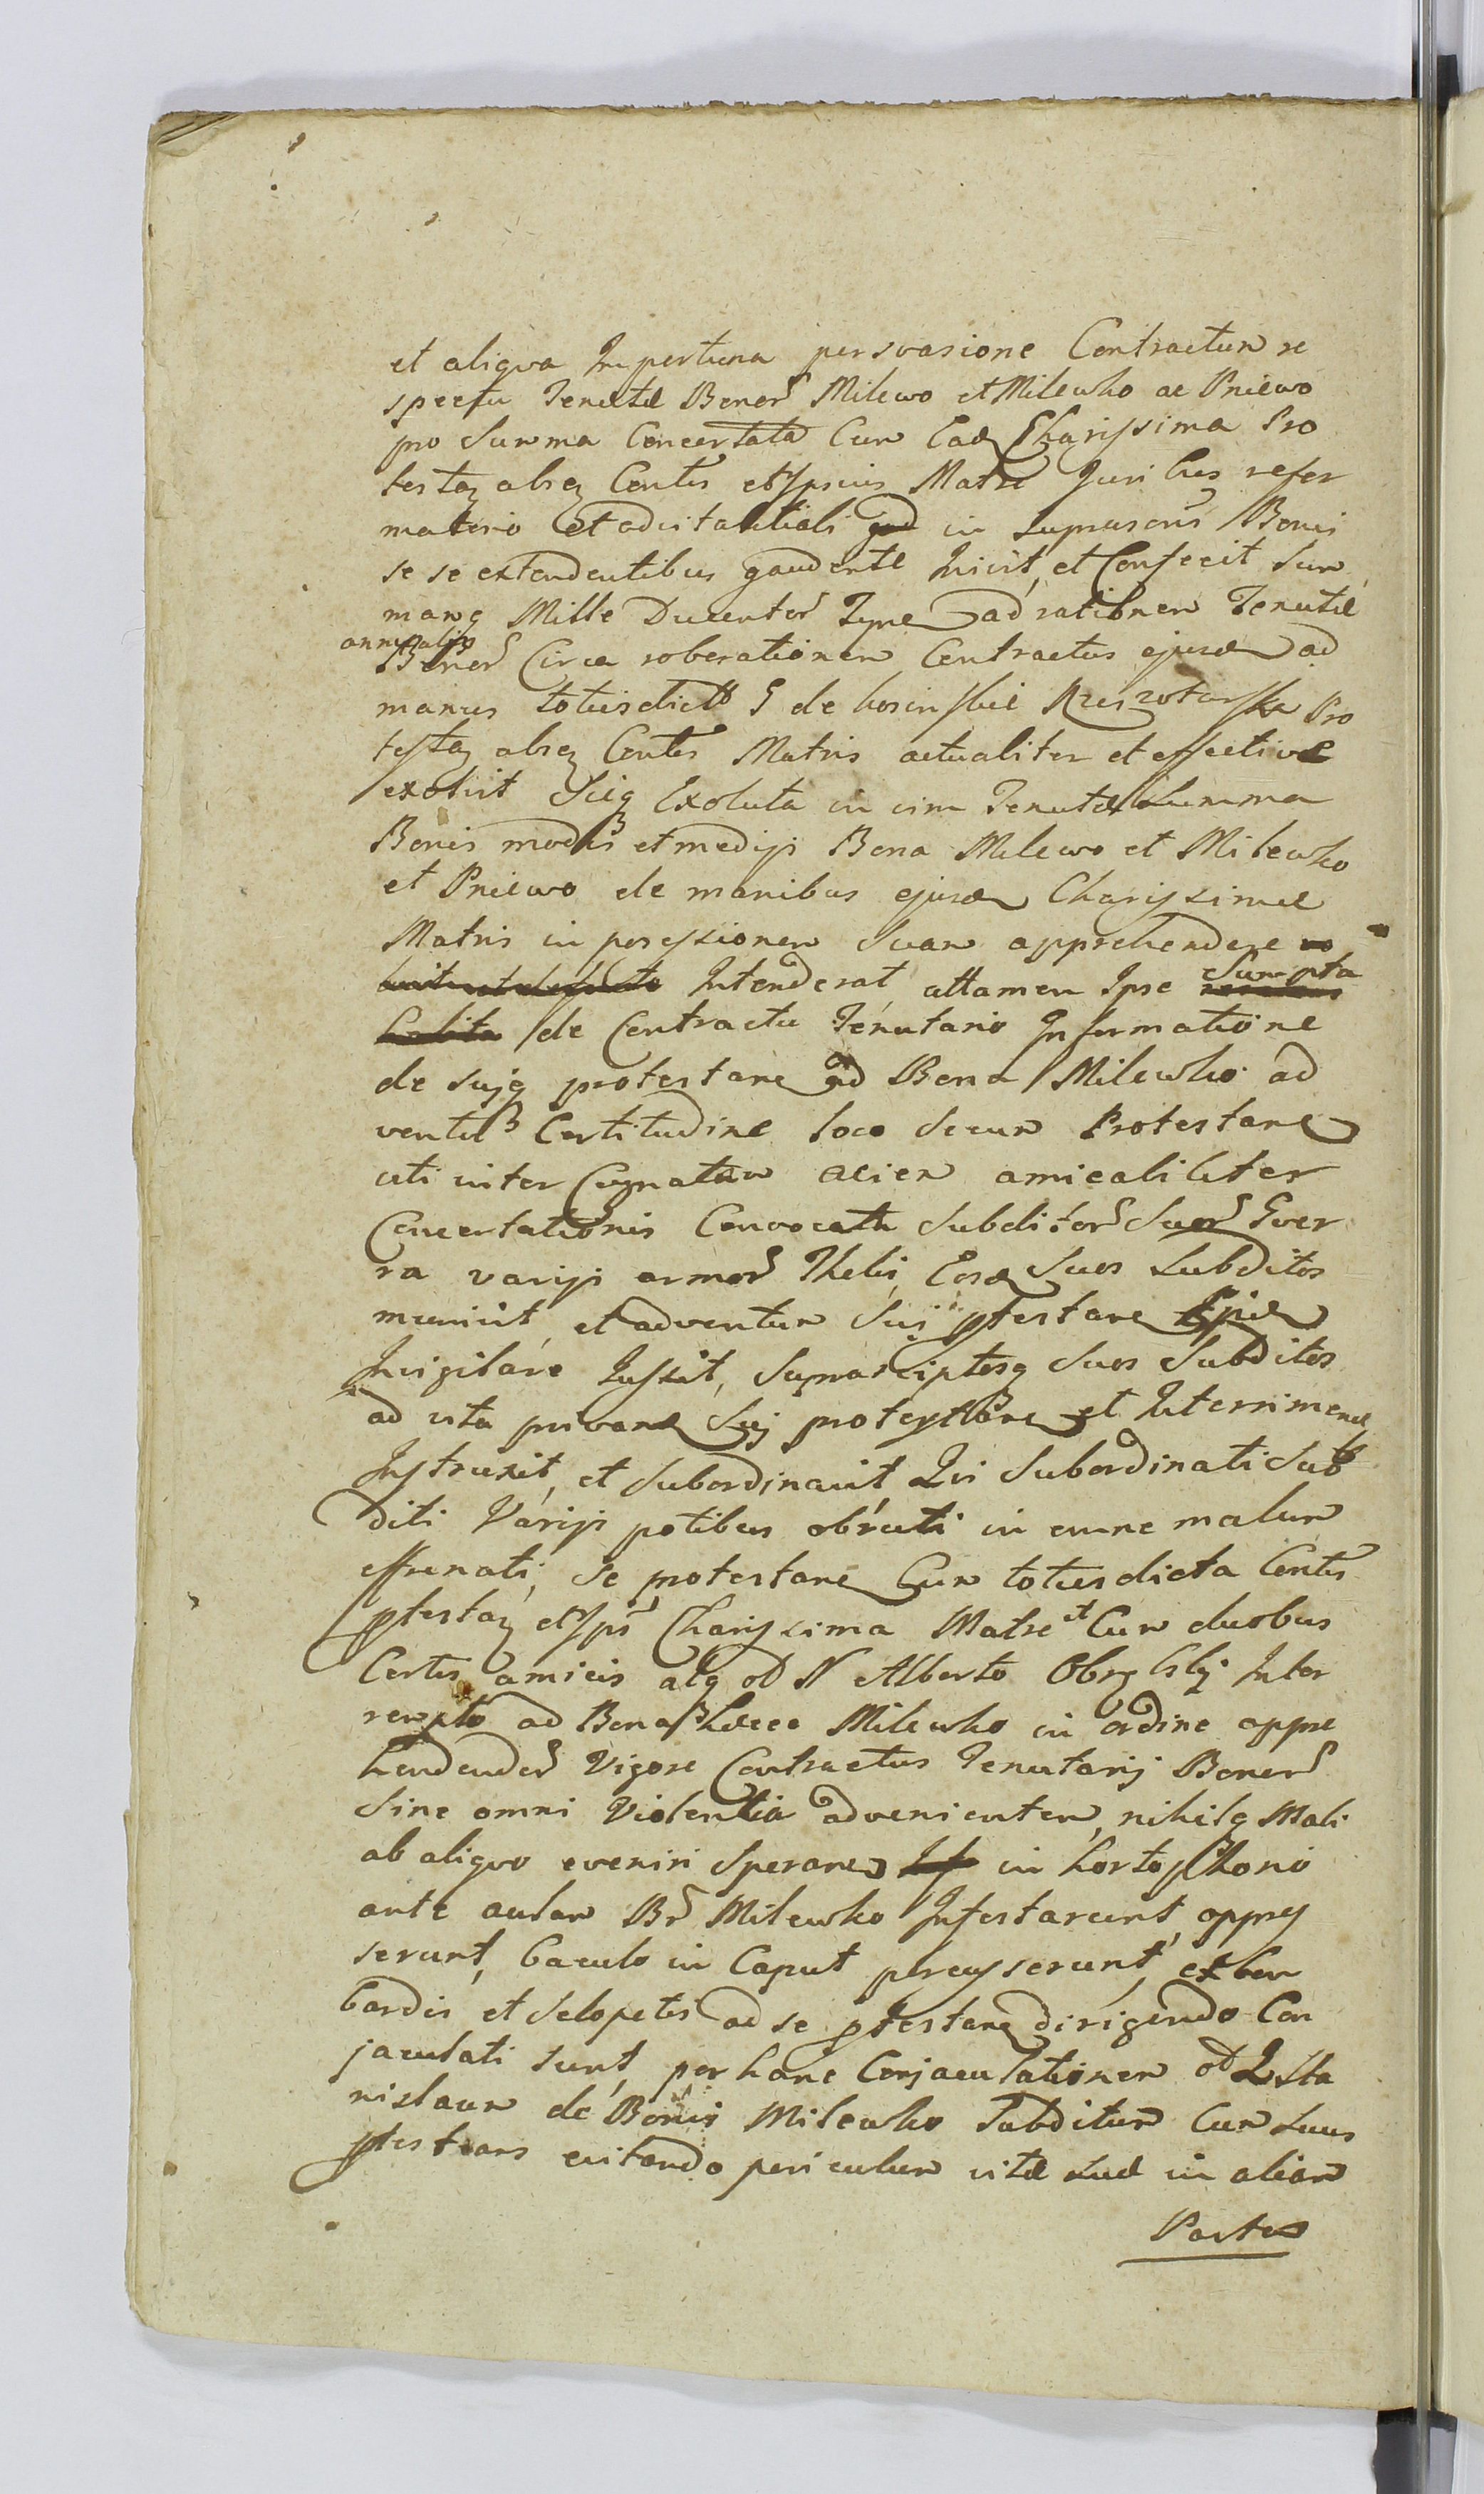 et aliqva Importuna persvasione Contractum re
spectu Tenutæ Bonor Milewo et Milewko ac Pniewo
pro Summa Concertata Cum Ead Charissima Pro
testaz absq Contis et Ipsius Matre Juribus refor
matorio et advitalitiali in Suprascris Bonis
se se extendentibus gaudente Inivit, et Confecit Sum
mamq Mille Ducentor Tynf ad rationem Tenutæ
annualis
Bonor Circa roborationem Contractus ejusd ad
manus toties dictæ G de Kosinskie Rzeszotarska Pro
testaz absq Contis Matris actualiter et effective
exolvit Sicq Exoluta in vim Tenutæ Summa
Bonis modis et medijs Bona Milewo et Milewko
et Pniewo de manibus ejusd Charissimæ
Matris in possessionem Suam apprehendere
Intenderat, attamen Ipse Sumpta
de Contractu Tenutario Informatione
de suiq protestane ad Bona Milewko ad
ventus Certitudine loco Secum Protestane
uti inter Cognatum acien amicabiliter
Concertationis Convocata Subditor Suor Gver
ra varijs armor Thelis, Eosd Suos Subditos
munivit, et adventum Sui ptestane
Invigilare Jussit, Suprascriptosq Suos Subditos
ad vita privane Sui protestane et Interrimene
Instruxit, et Subordinavit Qvi Subordinati Sub
diti Varijs potibus obruti in omne malum
effrenati, Se protestane Cum toties dicta Contis
ptestaz et Ips Charissima Matre et Cum duobus
Certis amicis atq od N Alberto Obrębskj Inter
rempto ad Bona Hæcce Milewko in ordine appre
hendendor Vigore Contractus Tenutarij Bonor
Sine omni Violentia advenientem, nihilq Mali
ab aliqvo eveniri Sperane in horto
ante aulam Br Milewko Infestarunt, oppres
serunt, baculo in Caput percusserunt, ex bom
bardis et Sclopetis ad se ptestane dirigendo Con
jaculati sunt, per hanc Conjaculationem od L Sta
nislaum de Bonis Milewko Subditum Cum Suus
ptestans evitando periculum vitæ Suæ in aliam
Partem